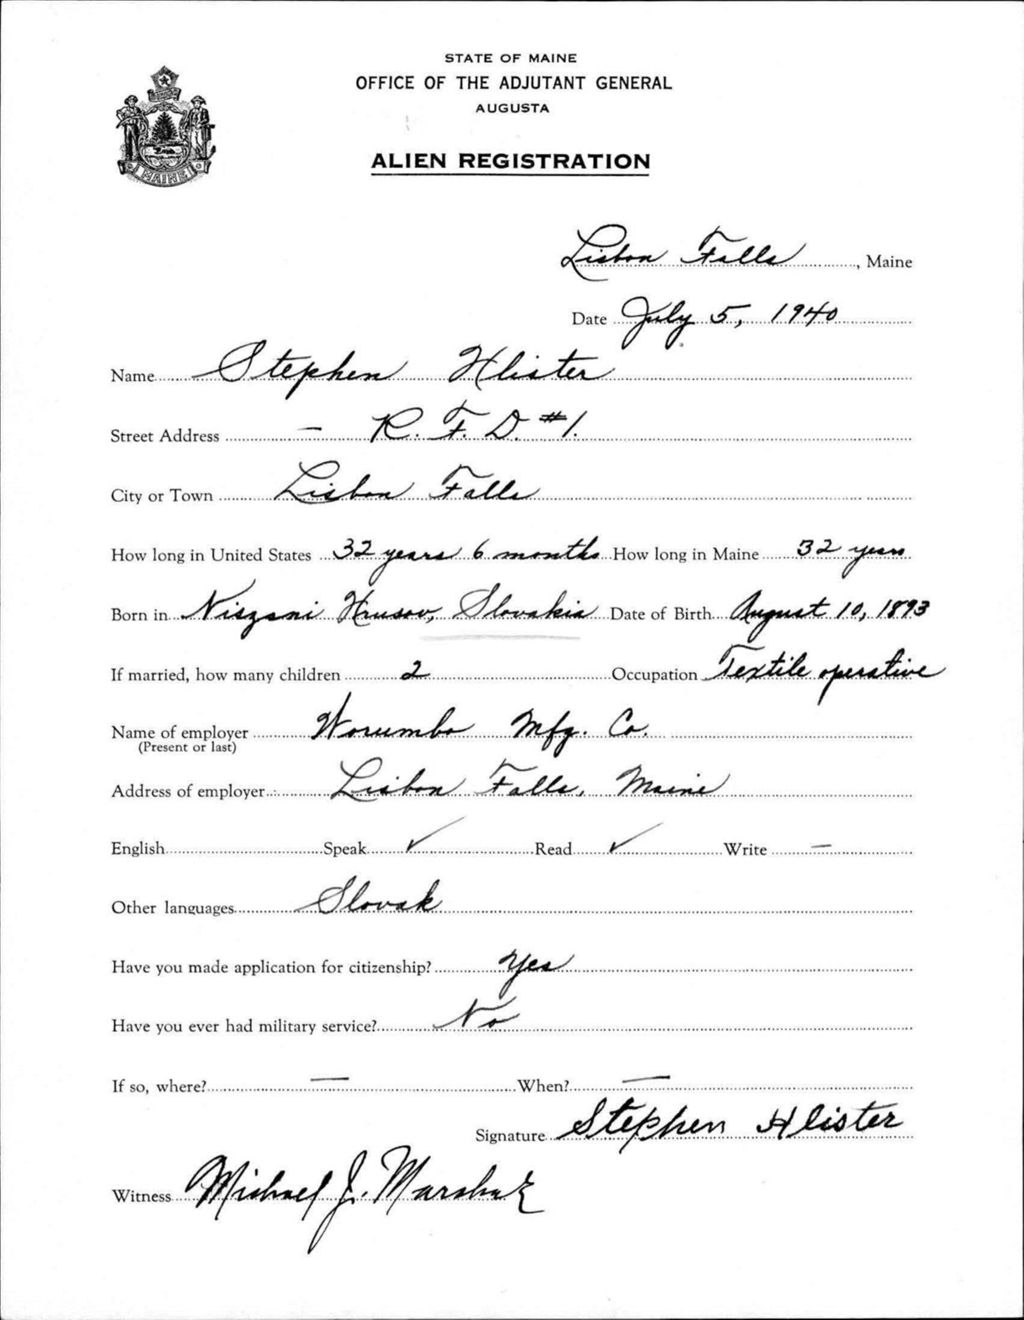 STATE OF MAINE
OFFICE OF THE ADJUTANT GENERAL
AUGUSTA
ALIEN REGISTRATION
MAINE
Lisbon Falls, Maine
Date July 5, 1940
Name Stephen Hlister
Street Address — R. F. D. #1.
City or Town Lisbon Falls
How long in United States 32 years 6 months How long in Maine 32 years
Born in Niszani Hrusov, Slovakia Date of Birth August 10, 1893
If married, how many children 2 Occupation Textile operative
Name of employer Worumbo Mfg. Co.
(Present or last)
Address of employer Lisbon Falls, Maine
English Speak ✓ Read ✓ Write —
Other languages Slovak
Have you made application for citizenship? Yes
Have you ever had military service? No
If so, where? — When? —
Signature Stephen Hlister
Witness Michael J.